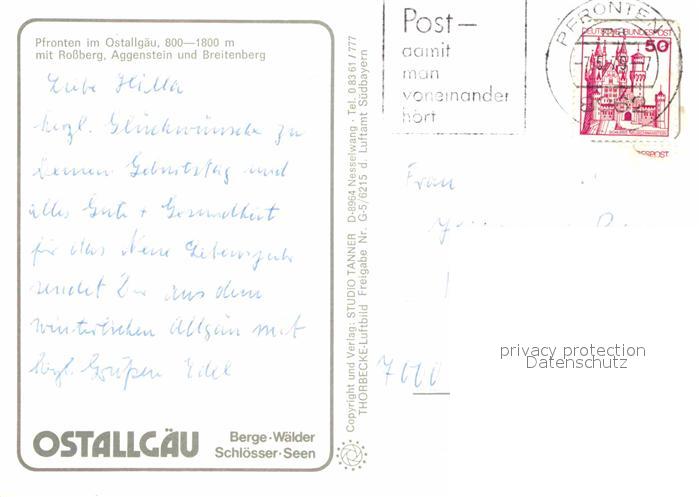 Pfronten im Ostallgäu, 800—1800 m
mit Roßberg, Aggenstein und Breitenberg
Liebe Hilla
herzl. Glückwünsche zu
Deinem Geburtstag und
alles Gute + Gesundheit
für das Neue Lebensjahr
sendet Dir aus dem
winterlichen Allgäu mit
herzl. Grüßen Edel
OSTALLGÄU
Berge · Wälder
Schlösser · Seen
Copyright und Verlag: STUDIO TANNER D-8964 Nesselwang · Tel. 0 83 61 / 777
THORBECKE-Luftbild Freigabe Nr. G-5/6215 d. Luftamt Südbayern
Post—
damit
man
voneinander
hört
PFRONTEN
DEUTSCHE BUNDESPOST
50
Frau
7000
privacy protection
Datenschutz